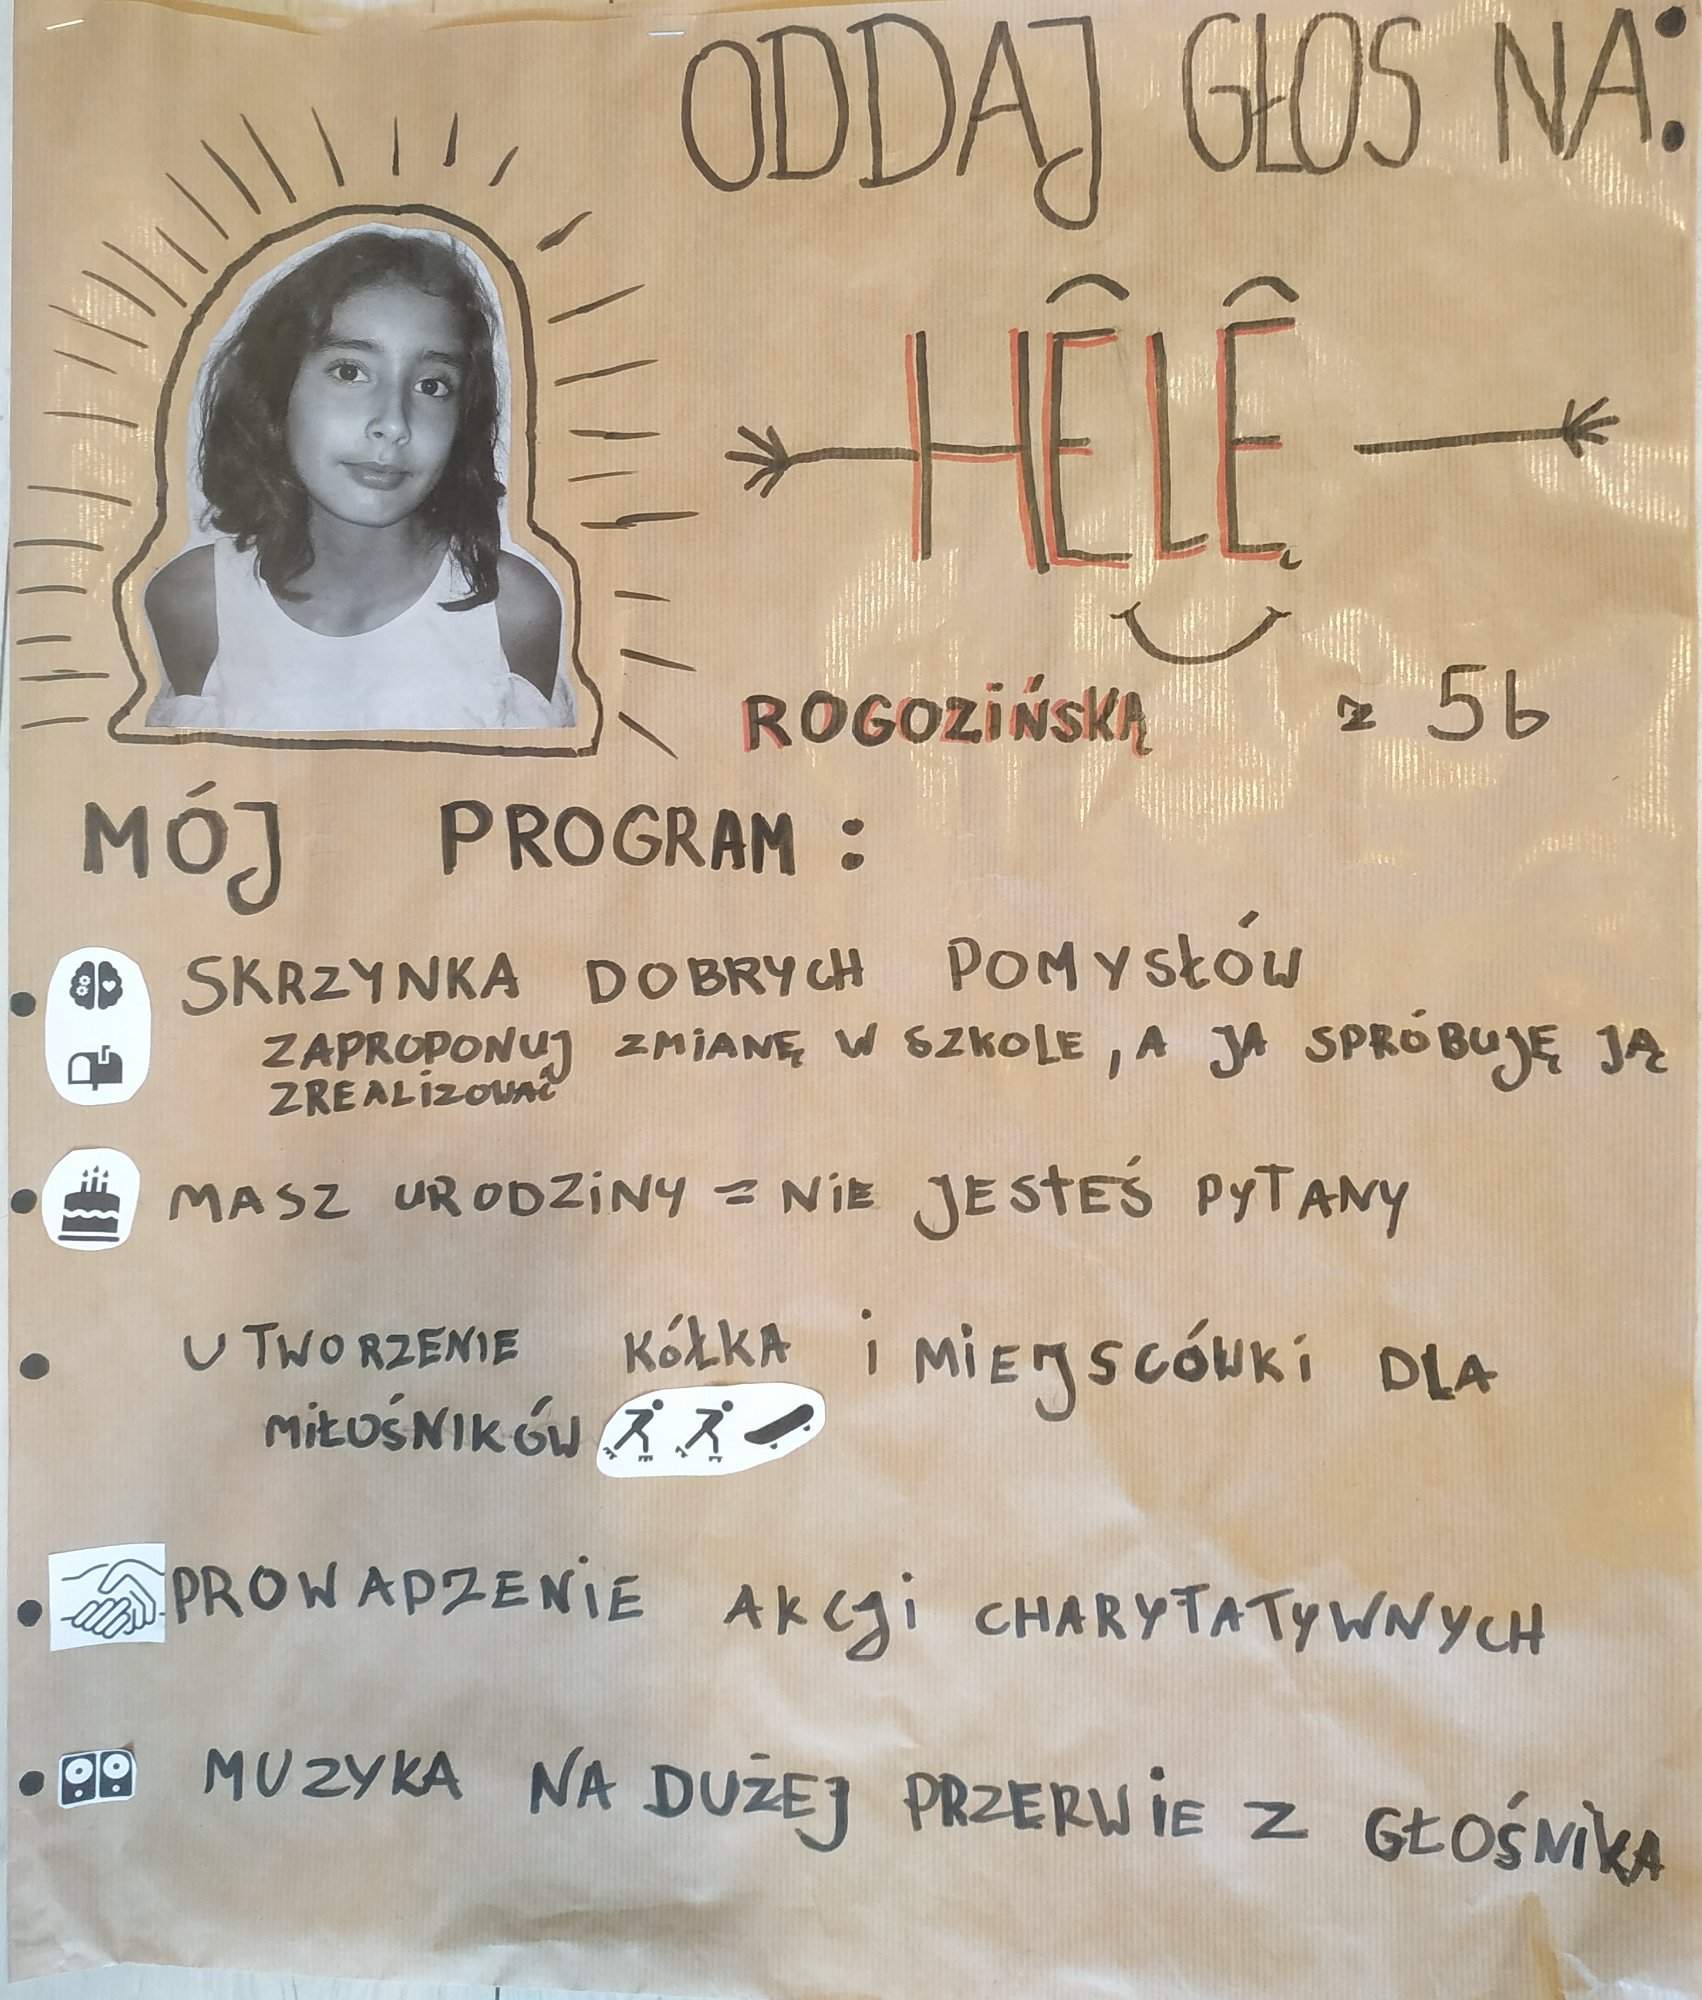 ODDAJ GŁOS NA:
HÊLĘ̂
ROGOZIŃSKĄ z 5b
MÓJ PROGRAM:
• SKRZYNKA DOBRYCH POMYSŁÓW
ZAPROPONUJ ZMIANĘ W SZKOLE, A JA SPRÓBUJĘ JĄ
ZREALIZOWAĆ
• MASZ URODZINY = NIE JESTEŚ PYTANY
• UTWORZENIE KÓŁKA i MIEJSCÓWKI DLA
MIŁOŚNIKÓW
• PROWADZENIE AKCJI CHARYTATYWNYCH
• MUZYKA NA DUŻEJ PRZERWIE Z GŁOŚNIKA